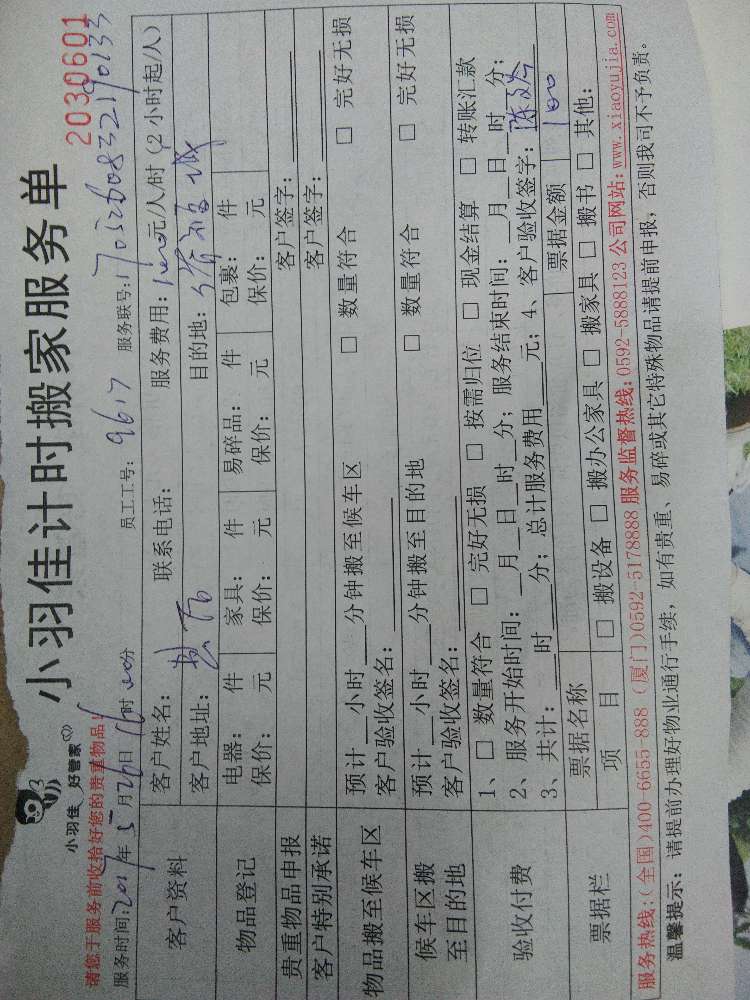 小羽佳计时搬家服务单
2030601
小羽佳 好管家
请您于服务前收拾好您的贵重物品!
服务时间:2017年5月26日16时00分 员工工号: 9617 服务联号:1705260832190133
客户资料 客户姓名: 联系电话: 服务费用:100元/人/时(2小时起/人)
客户地址: 目的地:
物品登记 电器: 件 家具: 件 易碎品: 件 包裹: 件
保价: 元 保价: 元 保价: 元 保价: 元
贵重物品申报 客户签字:
客户特别承诺 客户签字:
物品搬至候车区 预计__小时__分钟搬至候车区 □ 数量符合 □ 完好无损
客户验收签名:
候车区搬至目的地 预计__小时__分钟搬至目的地 □ 数量符合 □ 完好无损
客户验收签名:
验收付费 1、□ 数量符合 □ 完好无损 □ 按需归位 □ 现金结算 □ 转账汇款
2、服务开始时间:__月__日__时__分; 服务结束时间:__月__日__时__分;
3、共计:__时__分; 总计服务费用__元; 4、客户验收签字:
票据栏 票据名称 票据金额 100
项 目 □ 搬设备 □ 搬办公家具 □ 搬家具 □ 搬书 □ 其他:
服务热线:(全国)400-6655-888 (厦门)0592-5178888 服务监督热线:0592-5888123 公司网站:www.xiaoyujia.com
温馨提示: 请提前办理好物业通行手续, 如有贵重、易碎或其它特殊物品请提前申报, 否则我司不予负责。